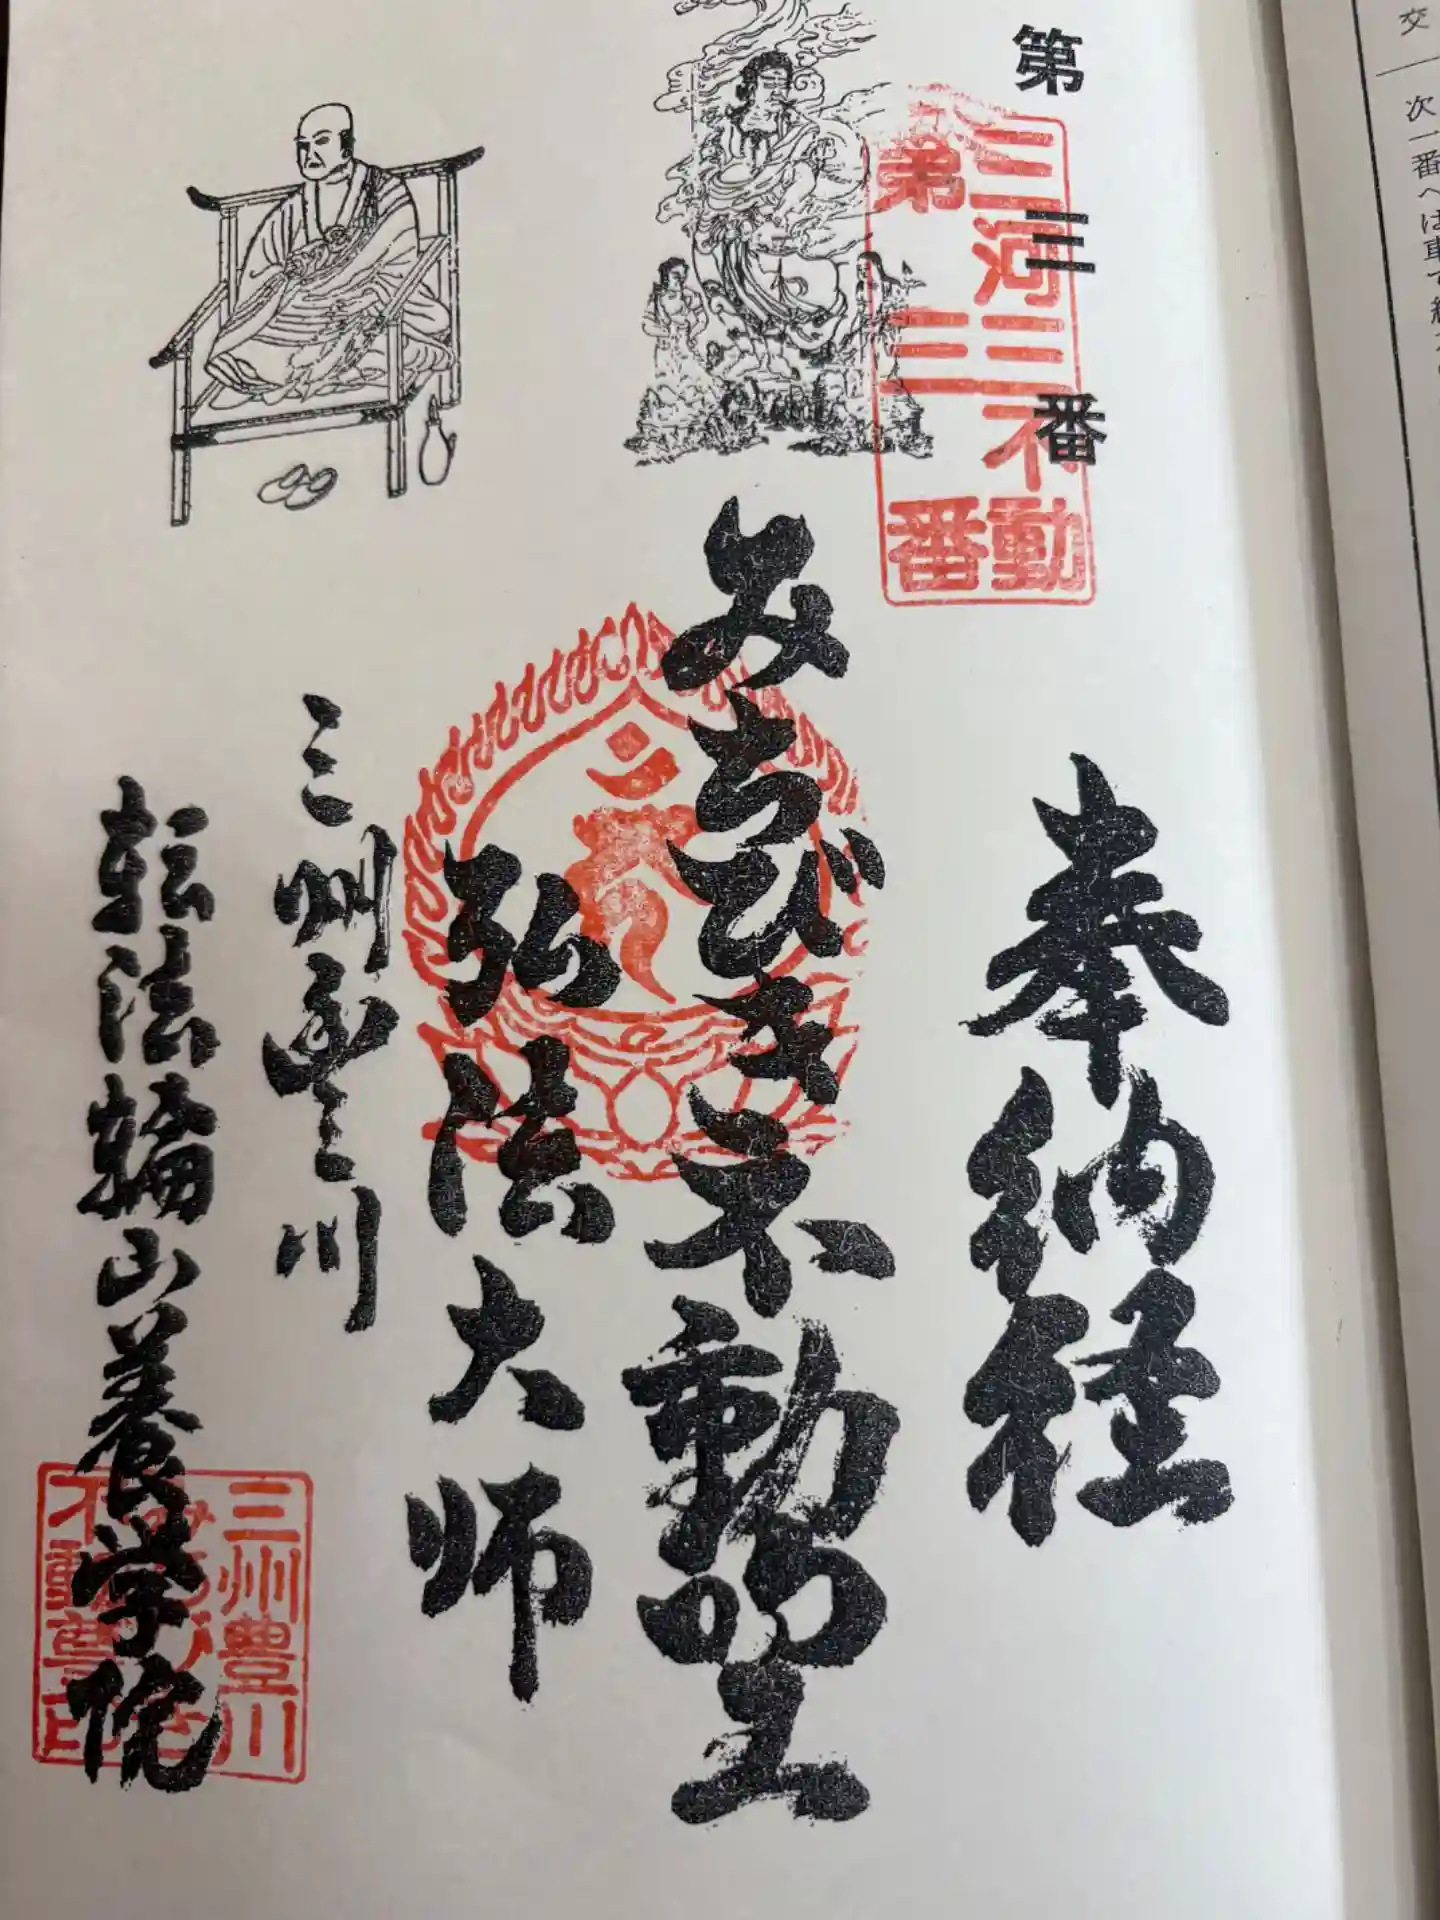 交
次一番へは車で
第三番
三河三不動
第三番
奉納経
みちびき不動明王
弘法大師
三州豊川
転法輪山養学院
三州豊川
みちびき
不動尊印